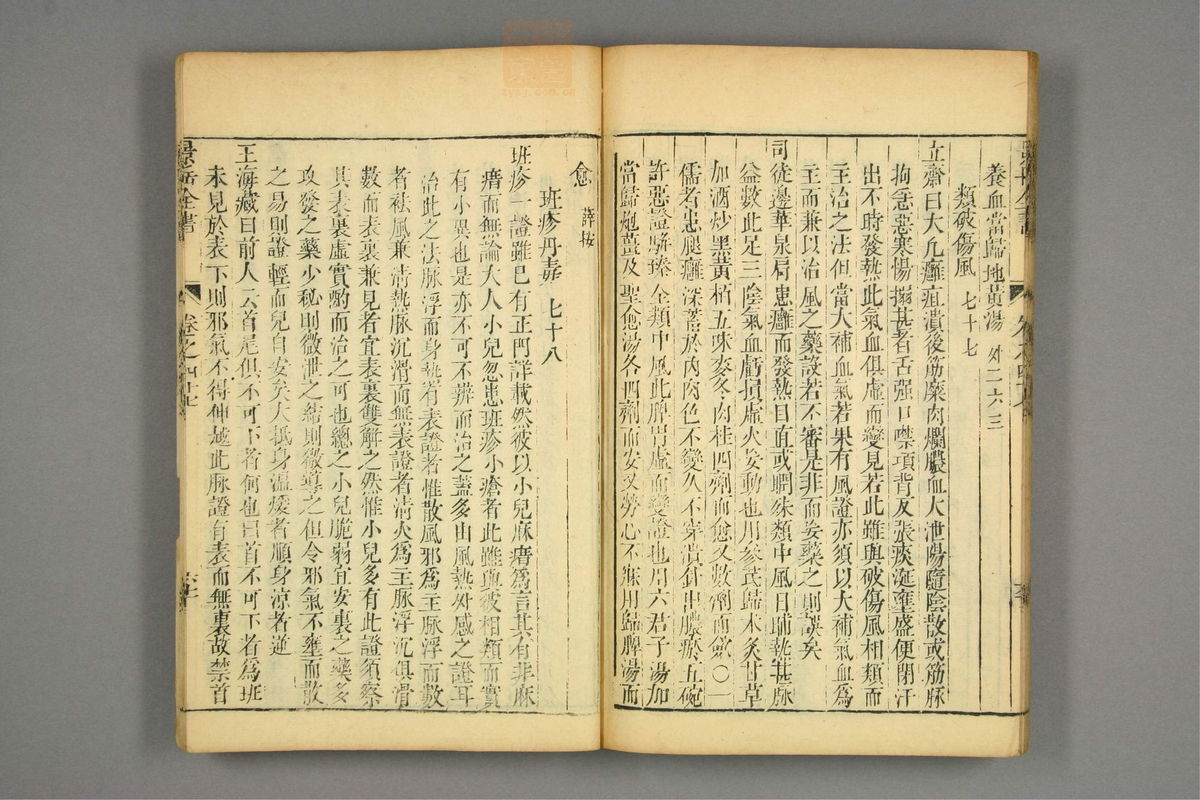 養血當歸地黃湯 外二六三
類破傷風 七十七
立齋曰大凡癰疽潰後筋糜肉爛膿血大泄陽隨陰散或筋脈
拘急惡寒惕搦甚者舌强口噤項背反張痰涎壅盛便閉汗
出不時發熱此氣血俱虛而變見若此雖與破傷風相類而
主治之法但當大補血氣若果有風證亦須以大補氣血為
主而兼以治風之藥設若不審是非而妄藥之則誤矣
司徒邊華泉肩患癰而發熱目直或瞤殊類中風日晡熱甚脈
益數此足三陰氣血虧損虛火妄動也用參芪歸朮炙甘草
加酒炒黑黃栢五味麥冬肉桂四劑而愈又數劑而斂○一
儒者患腿癰深蓄於內肉色不變久不穿潰針出膿瘀五碗
許惡證駢臻全類中風此脾胃虛而變證也用六君子湯加
當歸炮薑及聖愈湯各四劑而安又勞心不寐用歸脾湯而
愈 薛按
班疹丹毒 七十八
班疹一證雖已有正門詳載然彼以小兒麻瘄為言其有非麻
瘄而無論大人小兒忽患班疹小瘡者此雖與彼相類而實
有小異也是亦不可不辨而治之蓋多由風熱外感之證耳
治此之法脈浮而身熱有表證者惟散風邪為主脈浮而數
者祛風兼清熱脈沉滑而無表證者清火為主脈浮沉俱滑
數而表裏兼見者宜表裏雙解之然惟小兒多有此證須察
其表裏虛實酌而治之可也總之小兒脆弱宜安裏之藥多
攻發之藥少秘則微泄之結則微導之但令邪氣不壅而散
之易則證輕而兒自安矣大抵身温煖者順身涼者逆
王海藏曰前人云首尾俱不可下者何也曰首不可下者為班
未見於表下則邪氣不得伸越此脈證有表而無裏故禁首
景岳全書 卷之四十七